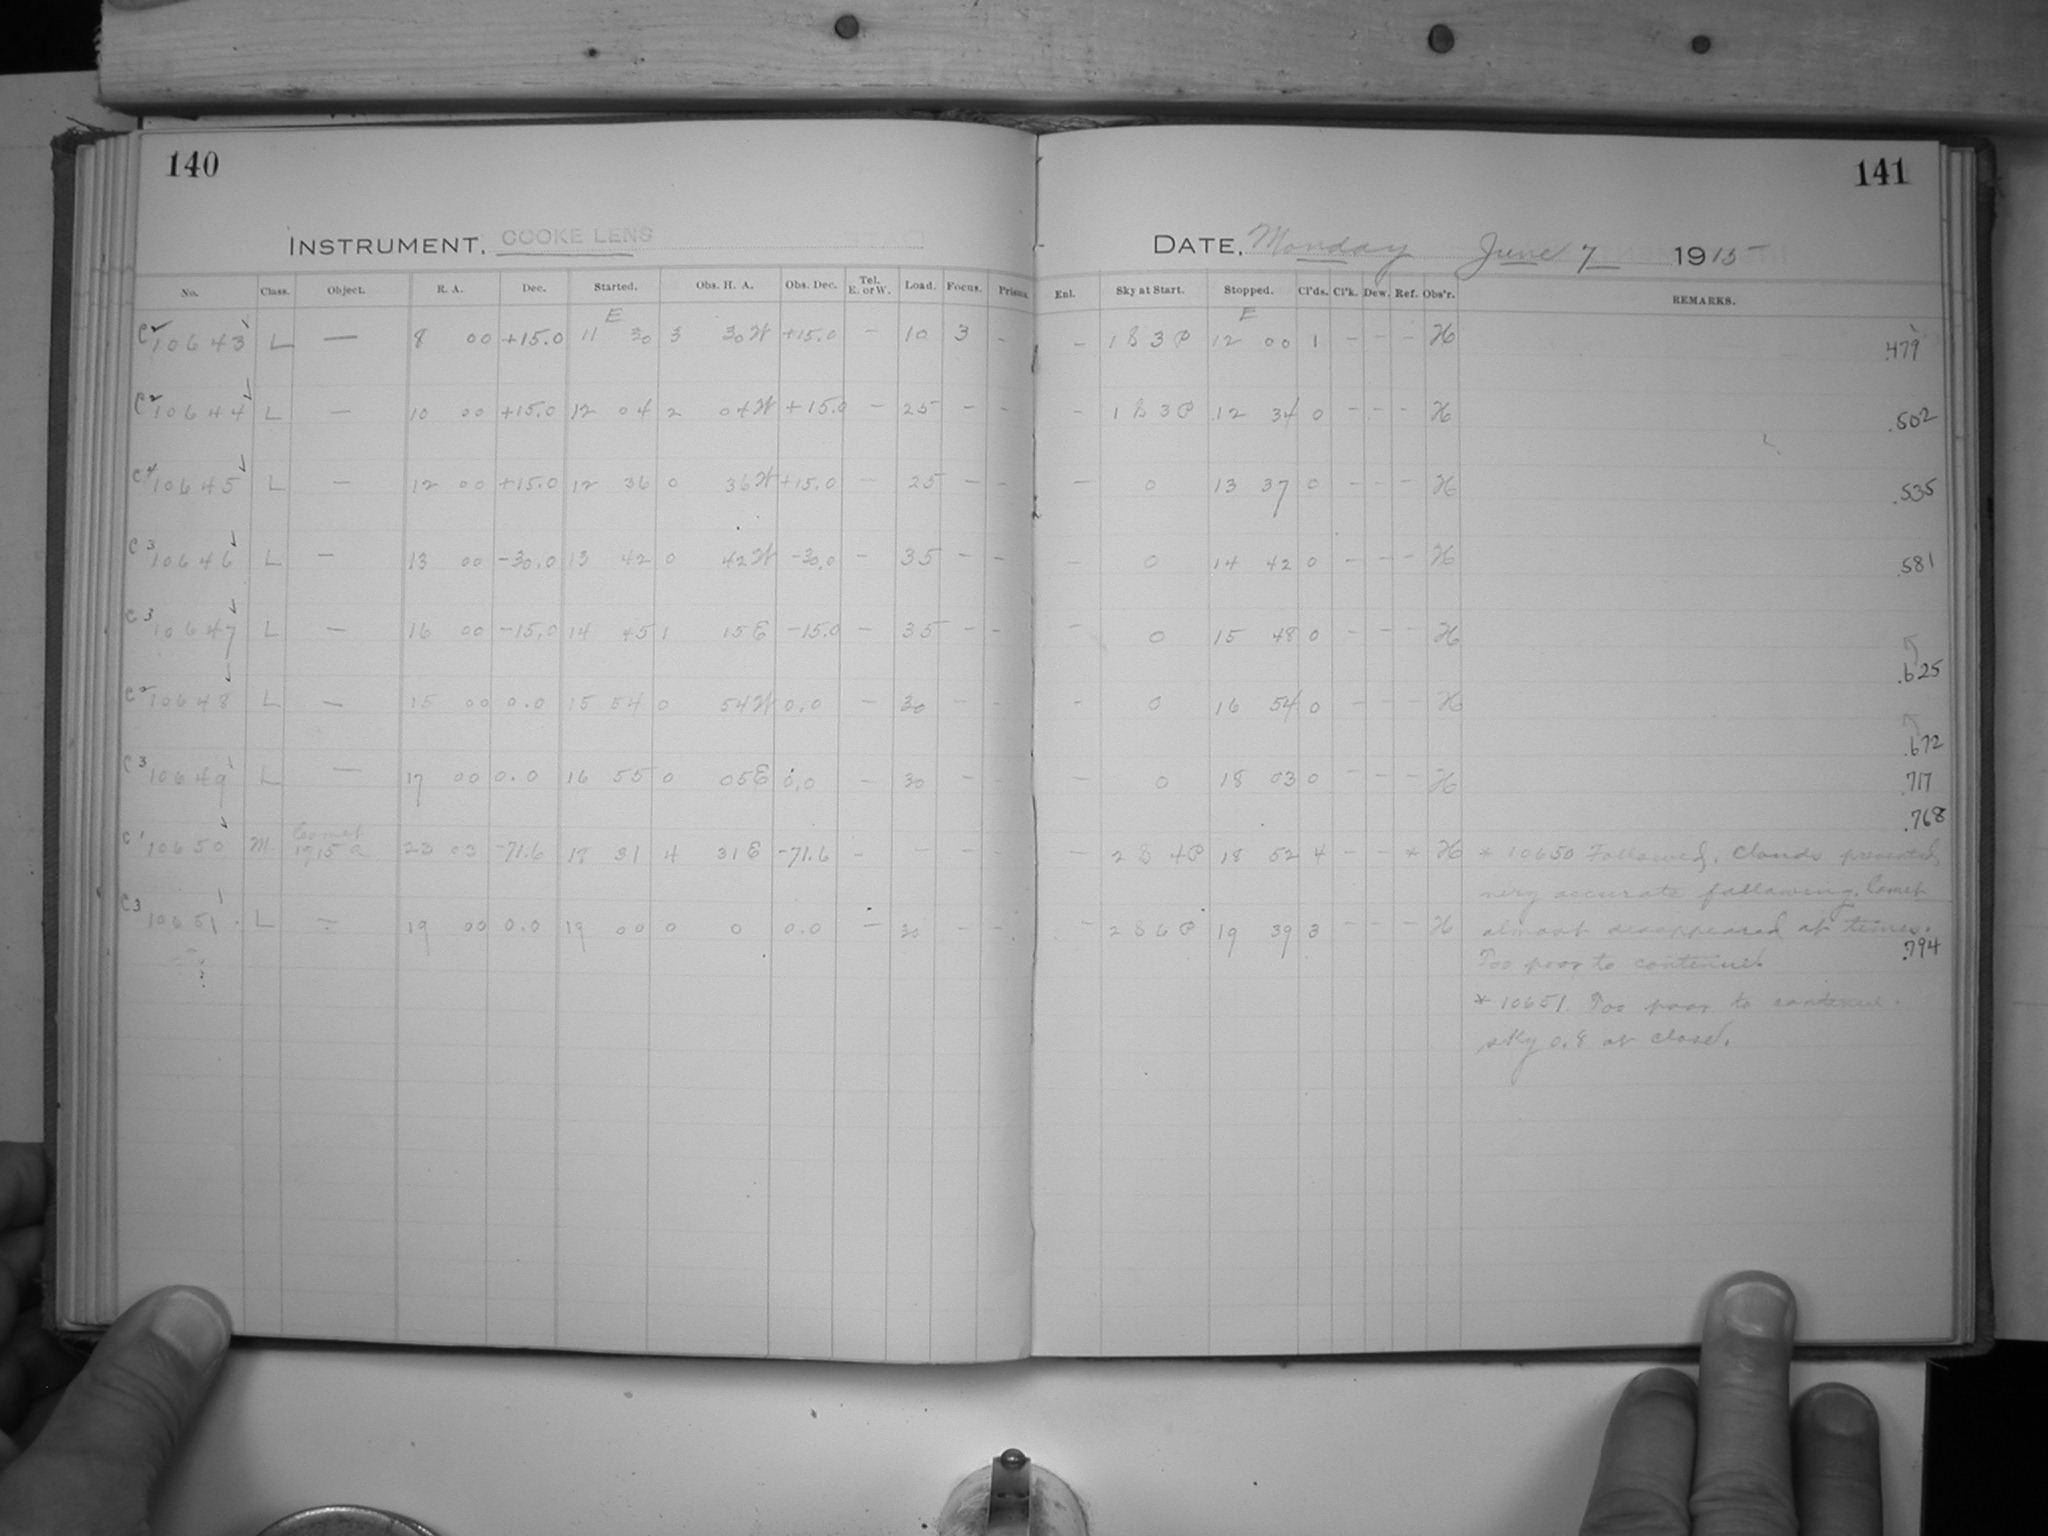 140
141
INSTRUMENT, COOKE LENS
DATE, Monday June 7 1915
No. Class. Object. R. A. Dec. Started. Obs. H. A. Obs. Dec. Tel. E. or W. Load. Focus. Prisms. Enl. Sky at Start. Stopped. Cl'ds. Cl'k. Dew. Ref. Obs'r. REMARKS.
E E
C2 10643 L — 8 00 +15.0 11 30 3 30 W +15.0 — 10 3 — — 1 S 3 P 12 00 1 — — — H .479
C2 10644 L — 10 00 +15.0 12 04 2 04 W +15.0 — 25 — — — 1 S 3 P 12 34 0 — — — H .502
C4 10645 L — 12 00 +15.0 12 36 0 36 W +15.0 — 25 — — — 0 13 37 0 — — — H .535
C3 10646 L — 13 00 -30.0 13 42 0 42 W -30.0 — 35 — — — 0 14 42 0 — — — H .581
C3 10647 L — 16 00 -15.0 14 45 1 15 E -15.0 — 35 — — — 0 15 48 0 — — — H .625
C2 10648 L — 15 00 0.0 15 54 0 54 W 0.0 — 30 — — — 0 16 54 0 — — — H .672
C3 10649 L — 17 00 0.0 16 55 0 05 E 0.0 — 30 — — — 0 18 03 0 — — — H .717
.768
C1 10650 M Comet 1915 a 23 03 -71.6 18 31 4 31 E -71.6 — — — — — 2 S 4 P 18 52 4 — — * H * 10650 Followed. Clouds prevented
very accurate following. Comet
C3 10651 L — 19 00 0.0 19 00 0 0 0.0 — 30 — — — 2 S 6 P 19 39 3 — — — H almost disappeared at times.
.794
Too poor to continue.
* 10651 Too poor to continue.
sky 0.8 at close.